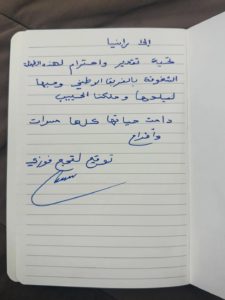 الى رانيا
تحية تقدير واحترام لهذه الطفلة
الشغوفة بالفريق الوطني وحبها
لفيلدها وملكنا الحبيب
دامت حياتها كلها مسرات
وأفراح
توقيع لتوج فوزي